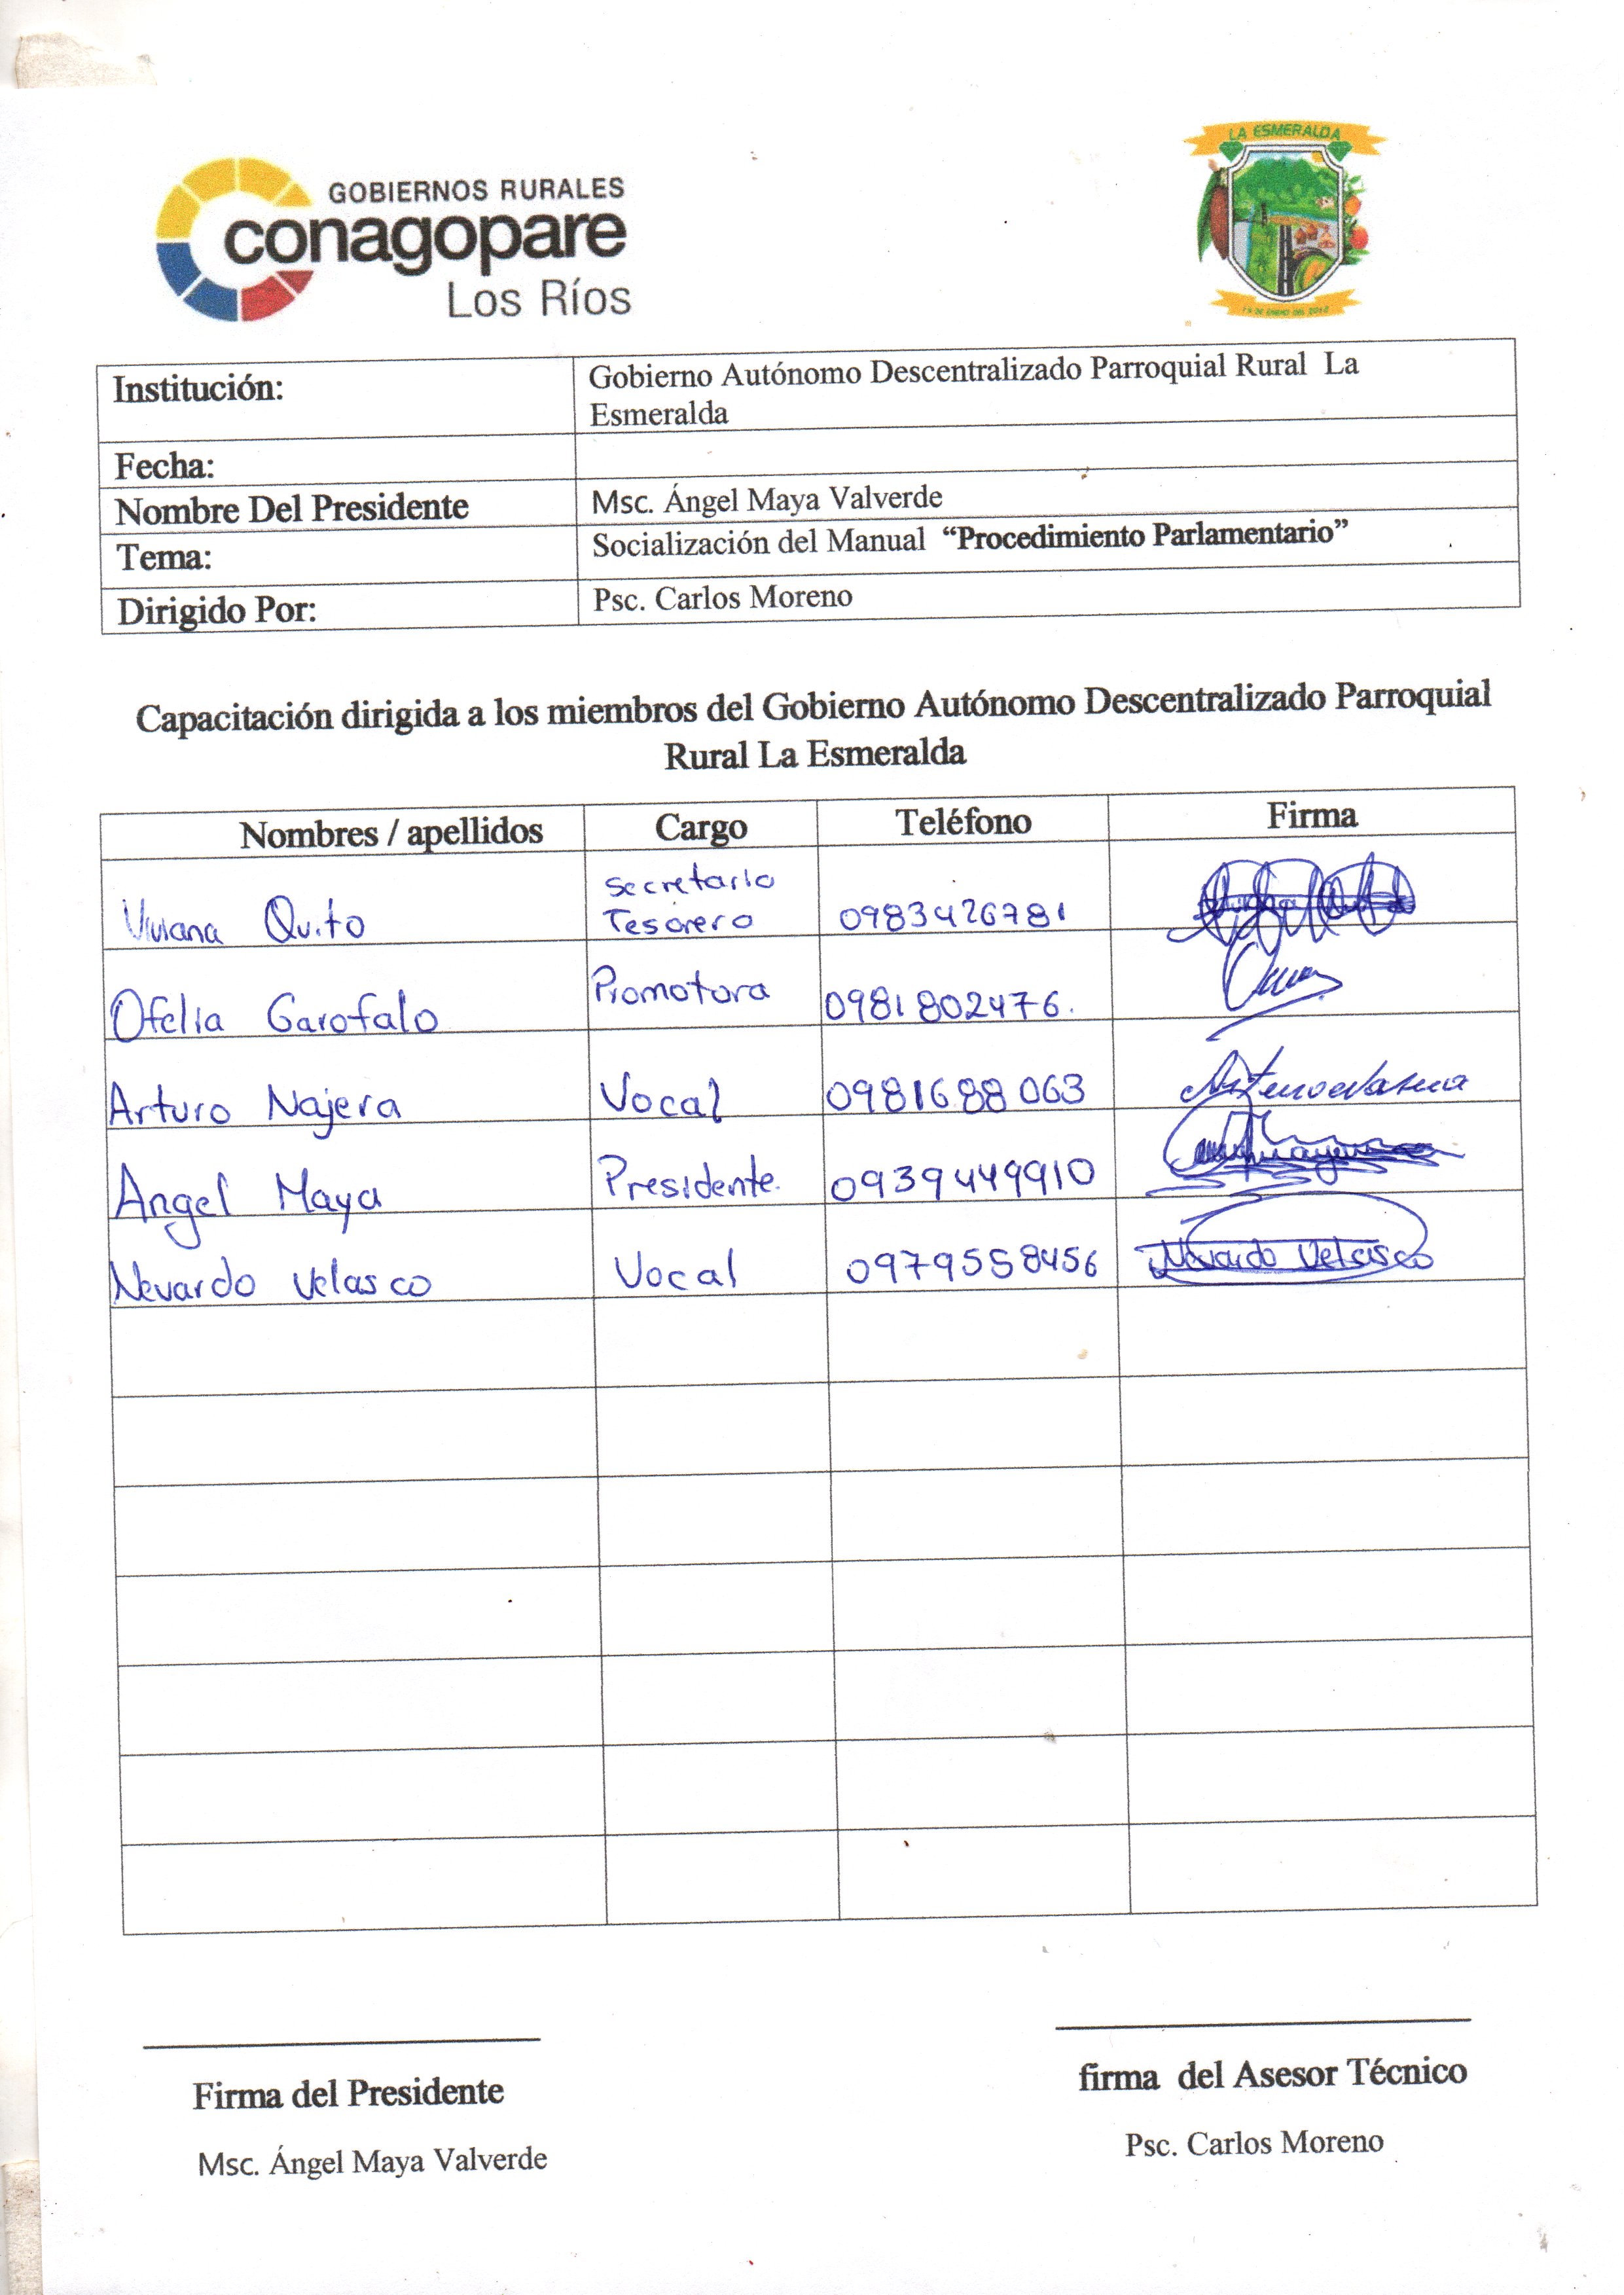 GOBIERNOS RURALES
conagopare
Los Ríos
LA ESMERALDA
Institución: Gobierno Autónomo Descentralizado Parroquial Rural La
Esmeralda
Fecha:
Nombre Del Presidente Msc. Ángel Maya Valverde
Tema: Socialización del Manual “Procedimiento Parlamentario”
Dirigido Por: Psc. Carlos Moreno
Capacitación dirigida a los miembros del Gobierno Autónomo Descentralizado Parroquial
Rural La Esmeralda
Nombres / apellidos Cargo Teléfono Firma
Viviana Quito Secretario Tesorero 0983426781
Ofelia Garofalo Promotora 0981802476.
Arturo Najera Vocal 0981688063
Angel Maya Presidente. 0939449910
Nevardo Velasco Vocal 0979558456 Nevardo Velasco
Firma del Presidente
Msc. Ángel Maya Valverde
firma del Asesor Técnico
Psc. Carlos Moreno